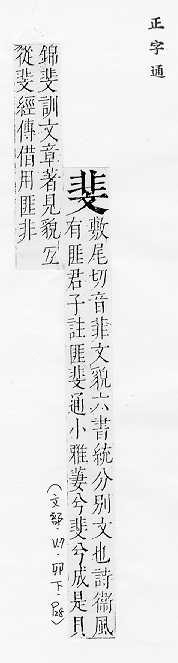 正字通
斐
敷尾切音菲文貌六書統分別文也詩衞風
有匪君子註匪斐通小雅萋兮斐兮成是貝
錦斐訓文章著見貌宜
從斐經傳借用匪非